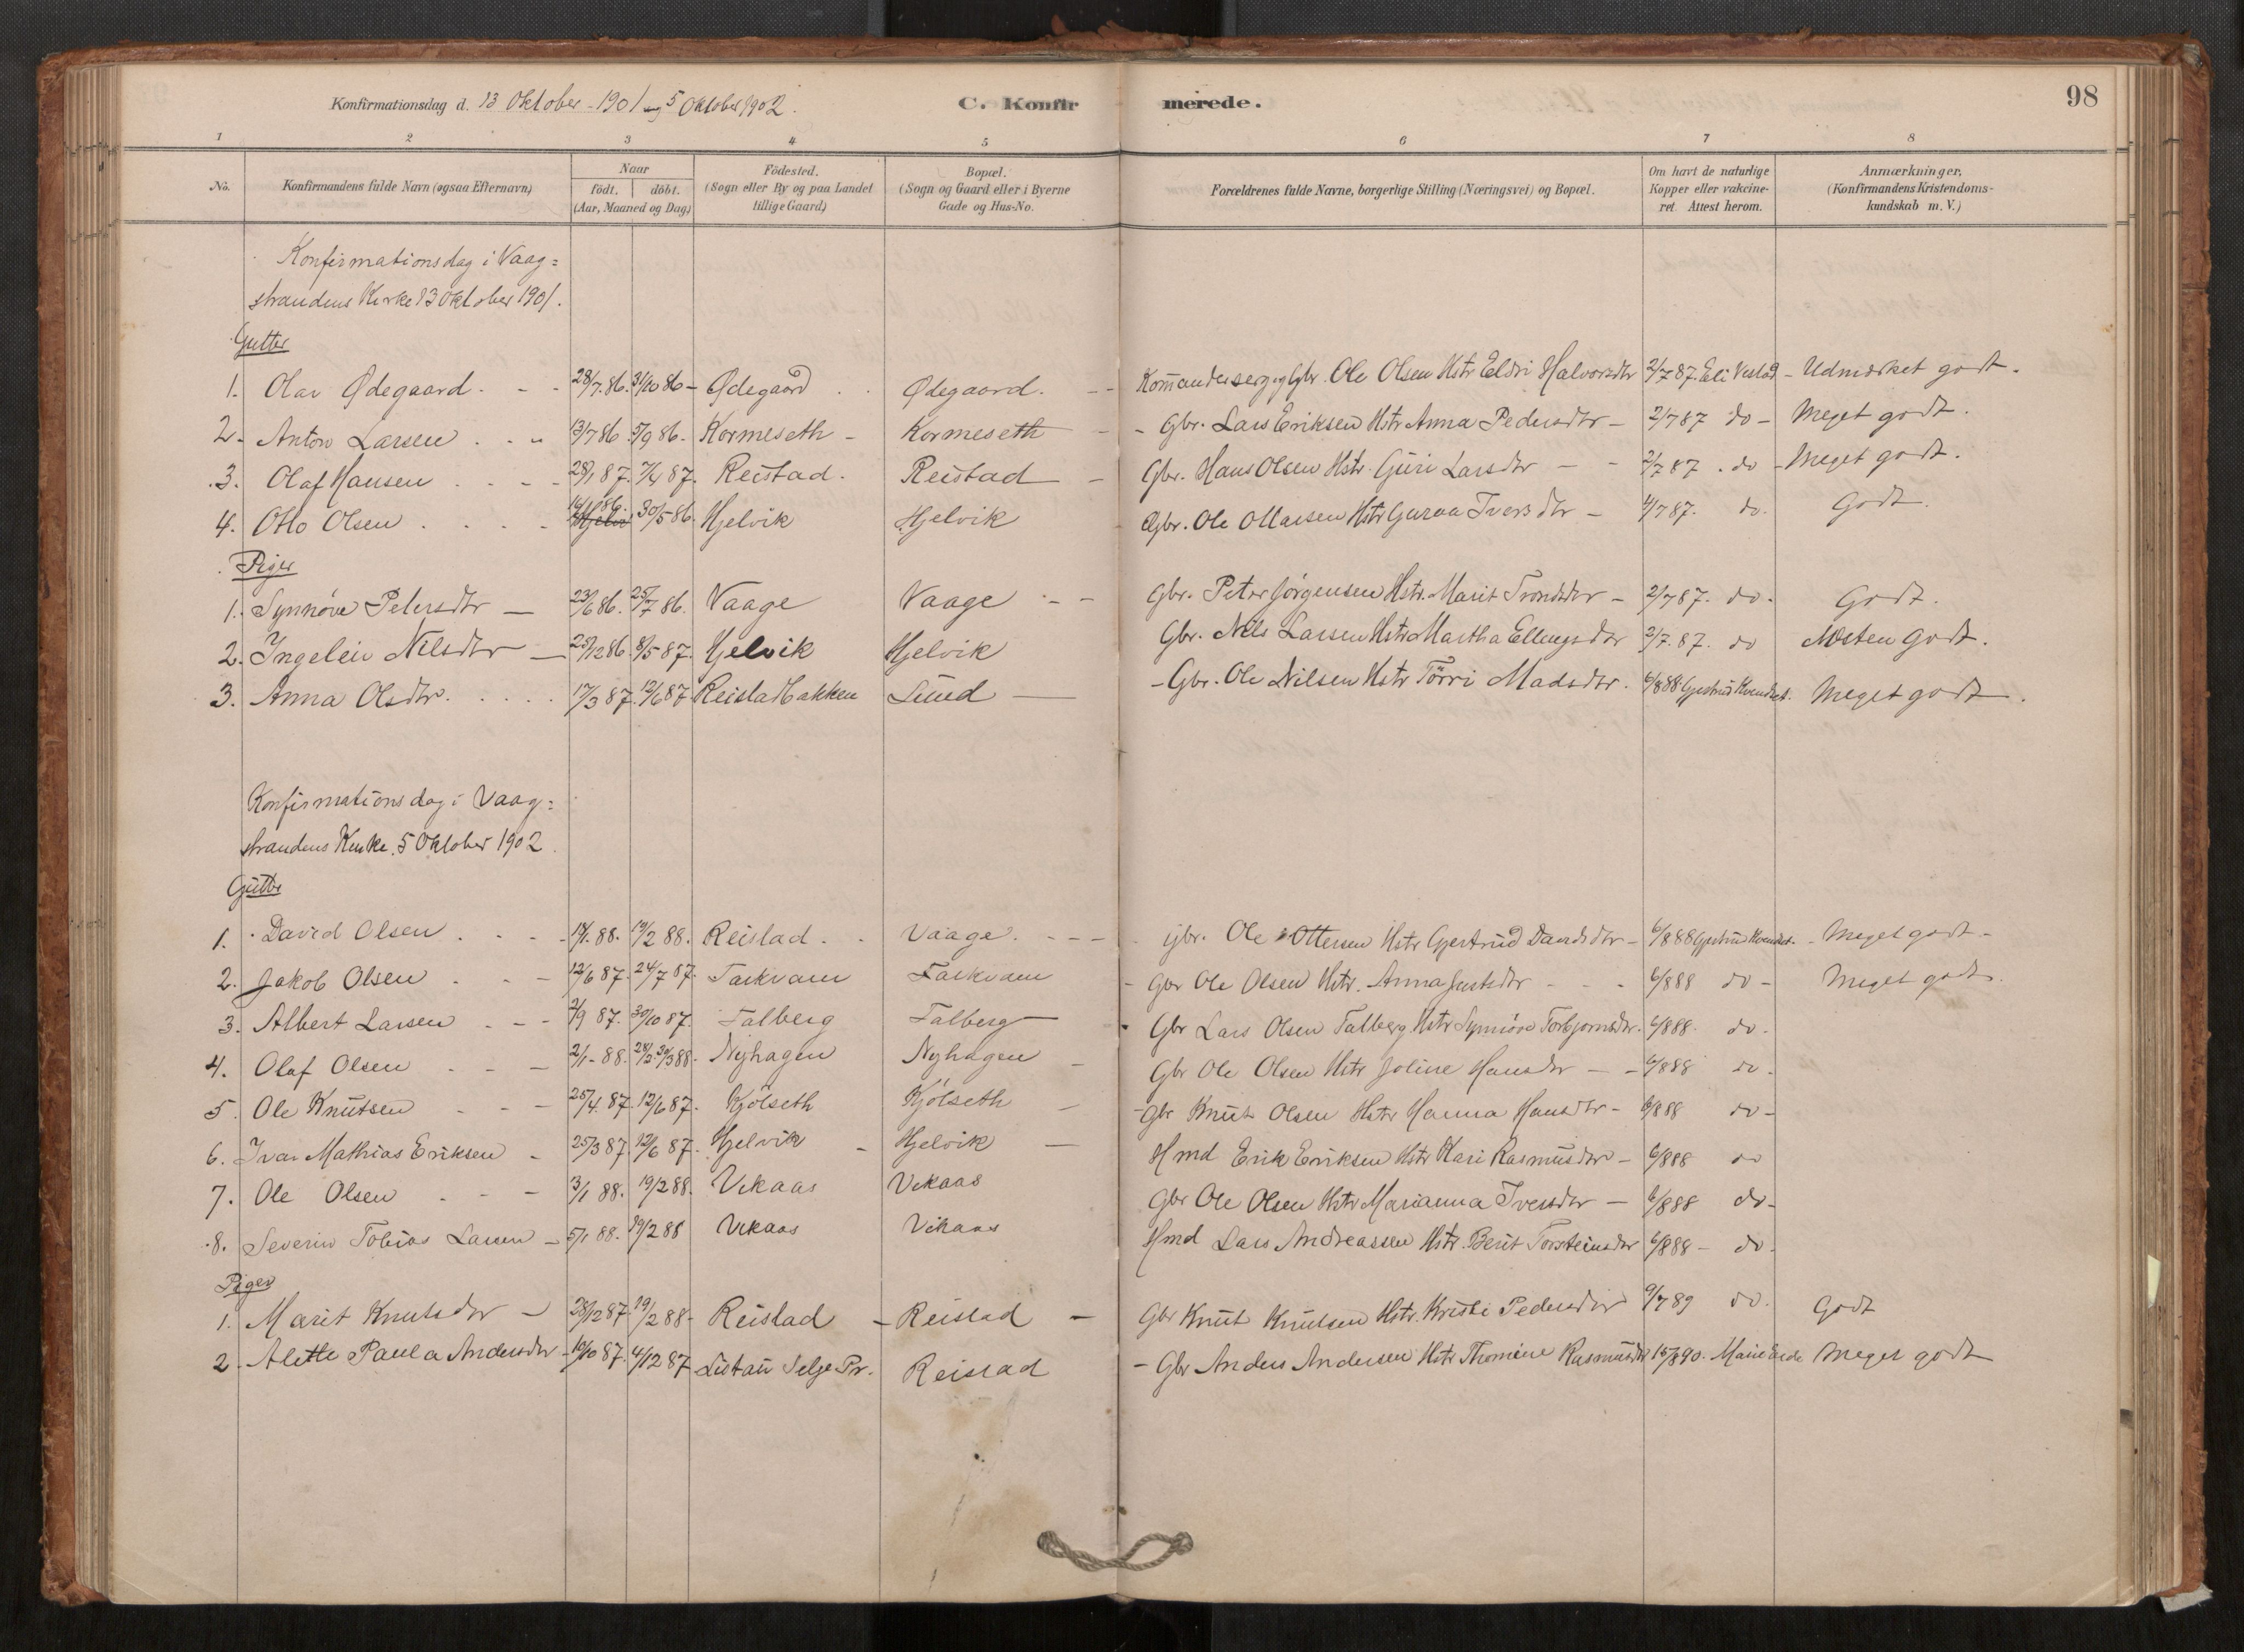 Konfirmationsdag d. 13 Oktober - 1901 og 5 Oktober 1902.
C. Konfirmerede.
98
1 2 3 4 5 6 7 8
No. Konfirmandens fulde Navn (ogsaa Efternavn) Naar födt. döbt. (Aar, Maaned og Dag) Födested. (Sogn eller By og paa Landet tillige Gaard) Bopæl. (Sogn og Gaard eller i Byerne Gade og Hus-No. Forældrenes fulde Navne, borgerlige Stilling (Næringsvei) og Bopæl. Om havt de naturlige Kopper eller vakcineret. Attest herom. Anmærkninger, (Konfirmandens Kristendomskundskab m. V.)
Konfirmationsdag i Vaag=
strandens Kirke 13 Oktober 1901.
Gutter
1. Olav Ødegaard - - 28/7.86. 31/10 86 - Ødegaard . . Ødegaard. - - Gbr. Ole Olsen Hstr Eldri Halvorsdtr 2/787. Eli Vestad - Udmærket godt.
2. Anton Larsen 13/786. 5/9 86. Kormeseth - Kormeseth - Gbr. Lars Eriksen Hstr Anna Pedersdtr - 2/787 do - Meget godt.
3. Olaf Hansen 28/1 87. 7/4 87. Reistad. Reistad - Gbr. Hans Olsen Hstr. Guri Larsdtr - - 2/787. do - Meget godt.
4. Otto Olsen 30/586. Hjelvik Hjelvik Gbr. Ole Hstr Guroa Iversdtr - 4/787. do. Godt.
Piger
1. Synnöve Petersdtr - 23/6 86. 25/7 86. Vaage Vaage - - Gbr. Peter Jörgensen Hstr. Marit Trondsdtr - 2/787. do. Godt.
2. Ingeleiv Nilsdtr - 25/1286. 8/587. Hjelvik Hjelvik Gbr. Nils Larsen Hstr Martha Ellingsdtr 2/7.87. do Næsten Godt.
3. Anna Olsdtr. 17/3 87. 12/687 Reistabakken Sund - Gbr. Ole Nilsen Hstr Törri Madsdtr. 6/888 Gjertrud Meget godt.
Konfirmationsdag i Vaag=
strandens Kirke. 5 Oktober 1902.
Gutter
1. David Olsen 18/1.88. 19/2 88. Reistad. . Vaage. - - - gbr. Ole Ottersen Hstr Gjertrud Davidsdtr - 6/888 Gjertrud - Meget godt -
2. Jakob Olsen 12/6 87. 24/7 87. Taskvam Taskvam - Gbr Ole Olsen Hstr. Anna - - - 6/888 do - Meget godt.
3. Albert Larsen 2/9 87. 30/10 87. Talberg Talberg Gbr Lars Olsen Talberg Hstr Synnöve Torbjörnsdtr. 6/888. do.
4. Olaf Olsen 2/1-88. Nyhagen Nyhagen - Gbr Ole Olsen Hstr Joline Hansdtr - - 6/888 do.
5. Ole Knutsen - - - 25/4. 87. 12/687. Kjölseth Kjölseth - - gbr Knut Olsen Hstr Hanna Hansdtr - 6/888 do -
6. Ivar Mathias Eriksen - 25/387 12/6 87. Hjelvik - Hjelvik - Hmd Erik Eriksen Hstr Kari Rasmusdtr - 6/888 do
7. Ole Olsen - - - 3/1 88. 19/288. Vekaas Vekaas Gbr Ole Olsen Hstr Marianna Iversdtr - 6/888 do -
8. Severin Tobias Larsen - 5/1 88. 19/2 88 Vekaas Vekaas Hmd Lars Andreassen Hstr. Berit Torsteinsdtr 6/888 - do.
Piger
1. Marit Knutsdtr - 28/1287. 19/288 - Reistad - Reistad - Gbr Knut Knutsen Hstr. Kristi Pedersdtr 9/789 do. Godt
2. Alette Paula Andersdtr - 10/10 87. 4/12 87 Selje Pr. Reistad - Gbr Anders Andersen Hstr Thomine Rasmusdtr 15/890. Meget godt